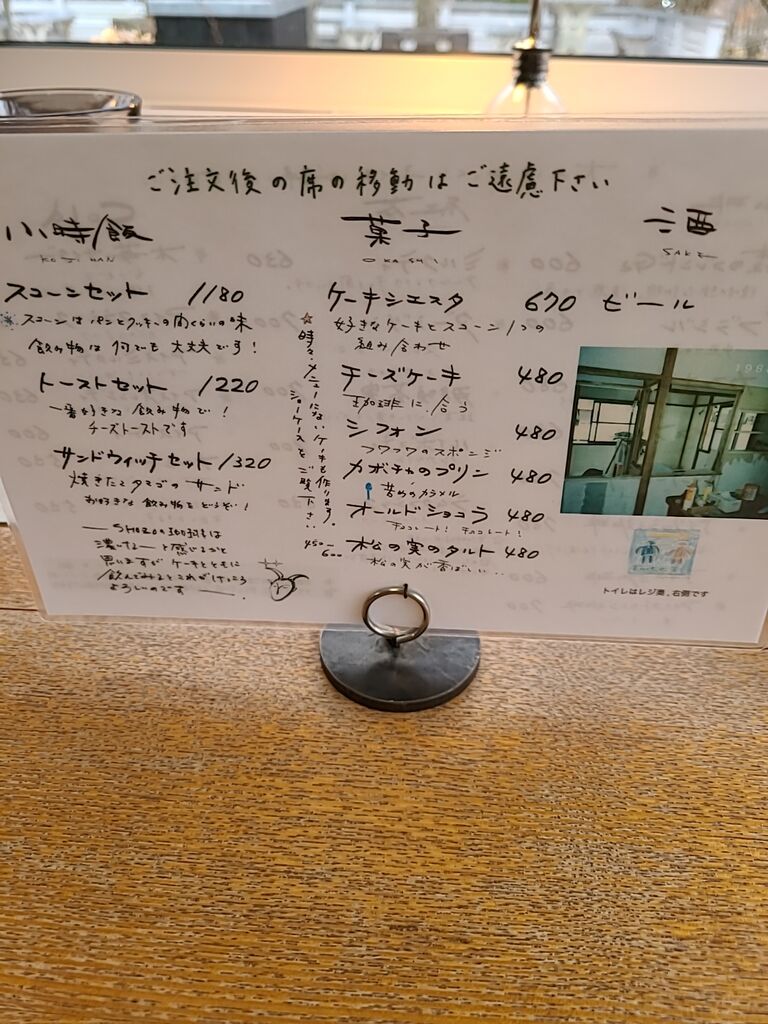 ご注文後の席の移動はご遠慮下さい
小時飯
KOJIHAN
スコーンセット 1180
スコーンはパンとクッキーの間くらいの味
飲み物は何でも大丈夫です!
トーストセット 1220
一番好きな飲み物で!
チーズトーストです
サンドウィッチセット 1320
焼きたてタマゴのサンド
お好きな飲み物をどうぞ!
SHOZOの珈琲は
濃いなーと感じるかと
思いますがケーキとともに
飲んでみるとこれがけっこう
よろしいのです
☆時々、メニューにないケーキも作ります。
ショーケースをご覧下さい。
菓子
OKASHI
ケーキシエスタ 670
好きなケーキとスコーン1つの
組み合わせ
チーズケーキ 480
珈琲に合う
シフォン 480
フワフワのスポンジ
カボチャのプリン 480
苦めのカラメル
オールドショコラ 480
チョコレート! チョコレート!
450-600
松の実のタルト 480
松の実が香ばしい...
酒
SAKE
ビール
198
トイレはレジ奥、右側です